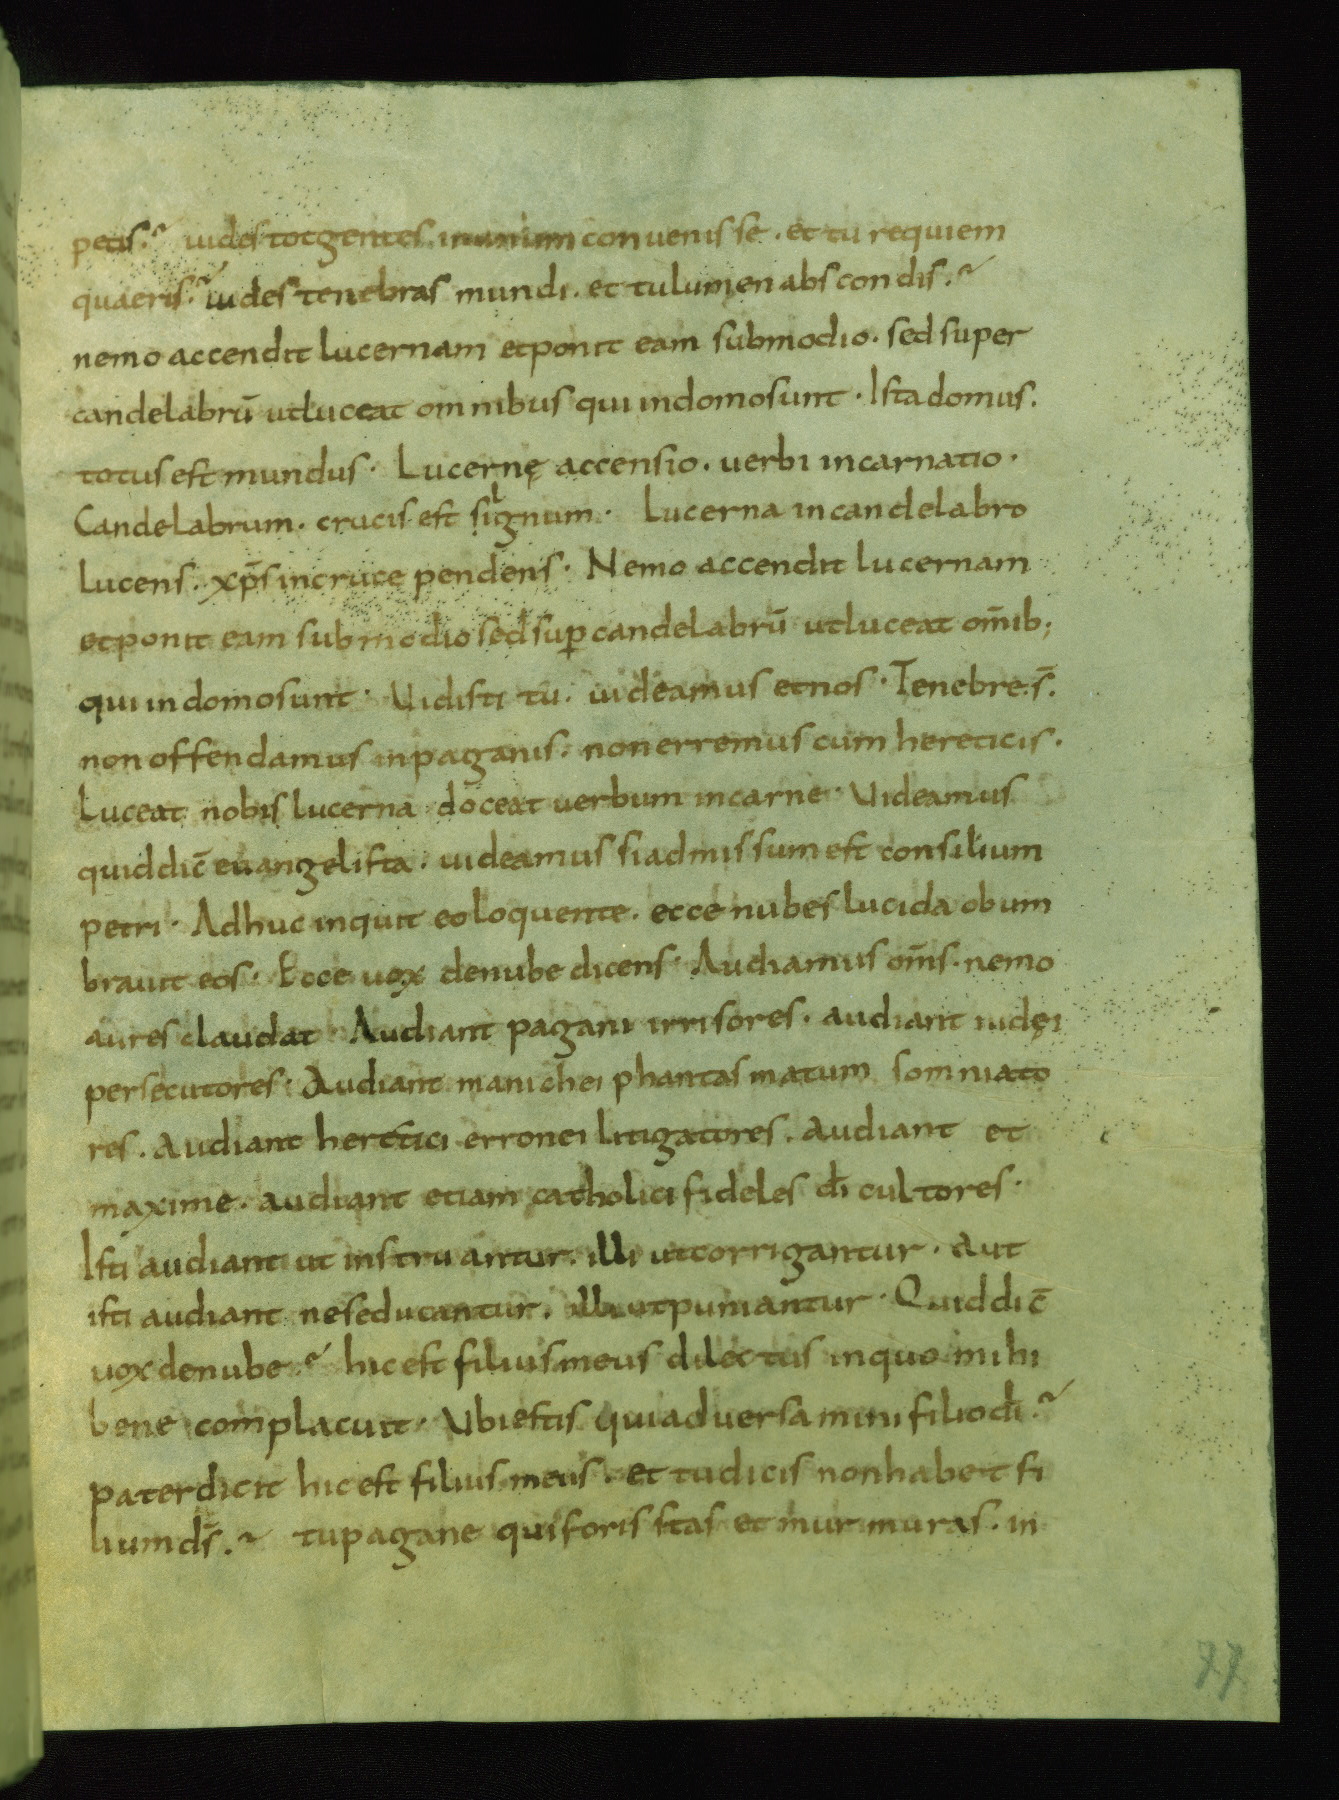 petis? uides tot gentes in unum conuenisse. et tu requiem
quaeris? uides tenebras mundi. et tu lumen abscondis?
nemo accendit lucernam et ponit eam sub modio. sed super
candelabrū ut luceat omnibus qui in domo sunt. Ista domus.
totus est mundus. Lucernę accensio. uerbi incarnatio.
Candelabrum. crucis est signum. Lucerna in candelabro
lucens. xp̄s in cruce pendens. Nemo accendit lucernam
et ponit eam sub modio sed suꝑ candelabrū ut luceat om̄ib;
qui in domo sunt. Uidisti tu. uideamus et nos. Tenebre s̄.
non offendamus in paganis. non erremus cum hereticis.
Luceat nobis lucerna doceat uerbum in carne. Uideamus
quid dic̄ euangelista. uideamus si admissum est consilium
petri. Adhuc inquit eo loquente. ecce nubes lucida obum
brauit eos. Ecce uox de nube dicens. Audiamus om̄s. nemo
aures claudat. Audiant pagani irrisores. audiant iudęi
persecutores. Audiant manichei phantasmatum somniato
res. Audiant heretici erronei litigatores. Audiant et
maxime. audiant etiam catholici fideles dī cultores.
Isti audiant ut instruantur. illi ut corrigantur. Aut
isti audiant ne seducantur. illi ut puniantur. Quid dic̄
uox de nube? hic est filius meus dilectus in quo mihi
bene complacuit. Ubi estis qui aduersamini filio dī?
pater dicit hic est filius meus. et tu dicis non habet fi
lium ds̄? tu pagane qui foris stas et murmuras. in
77